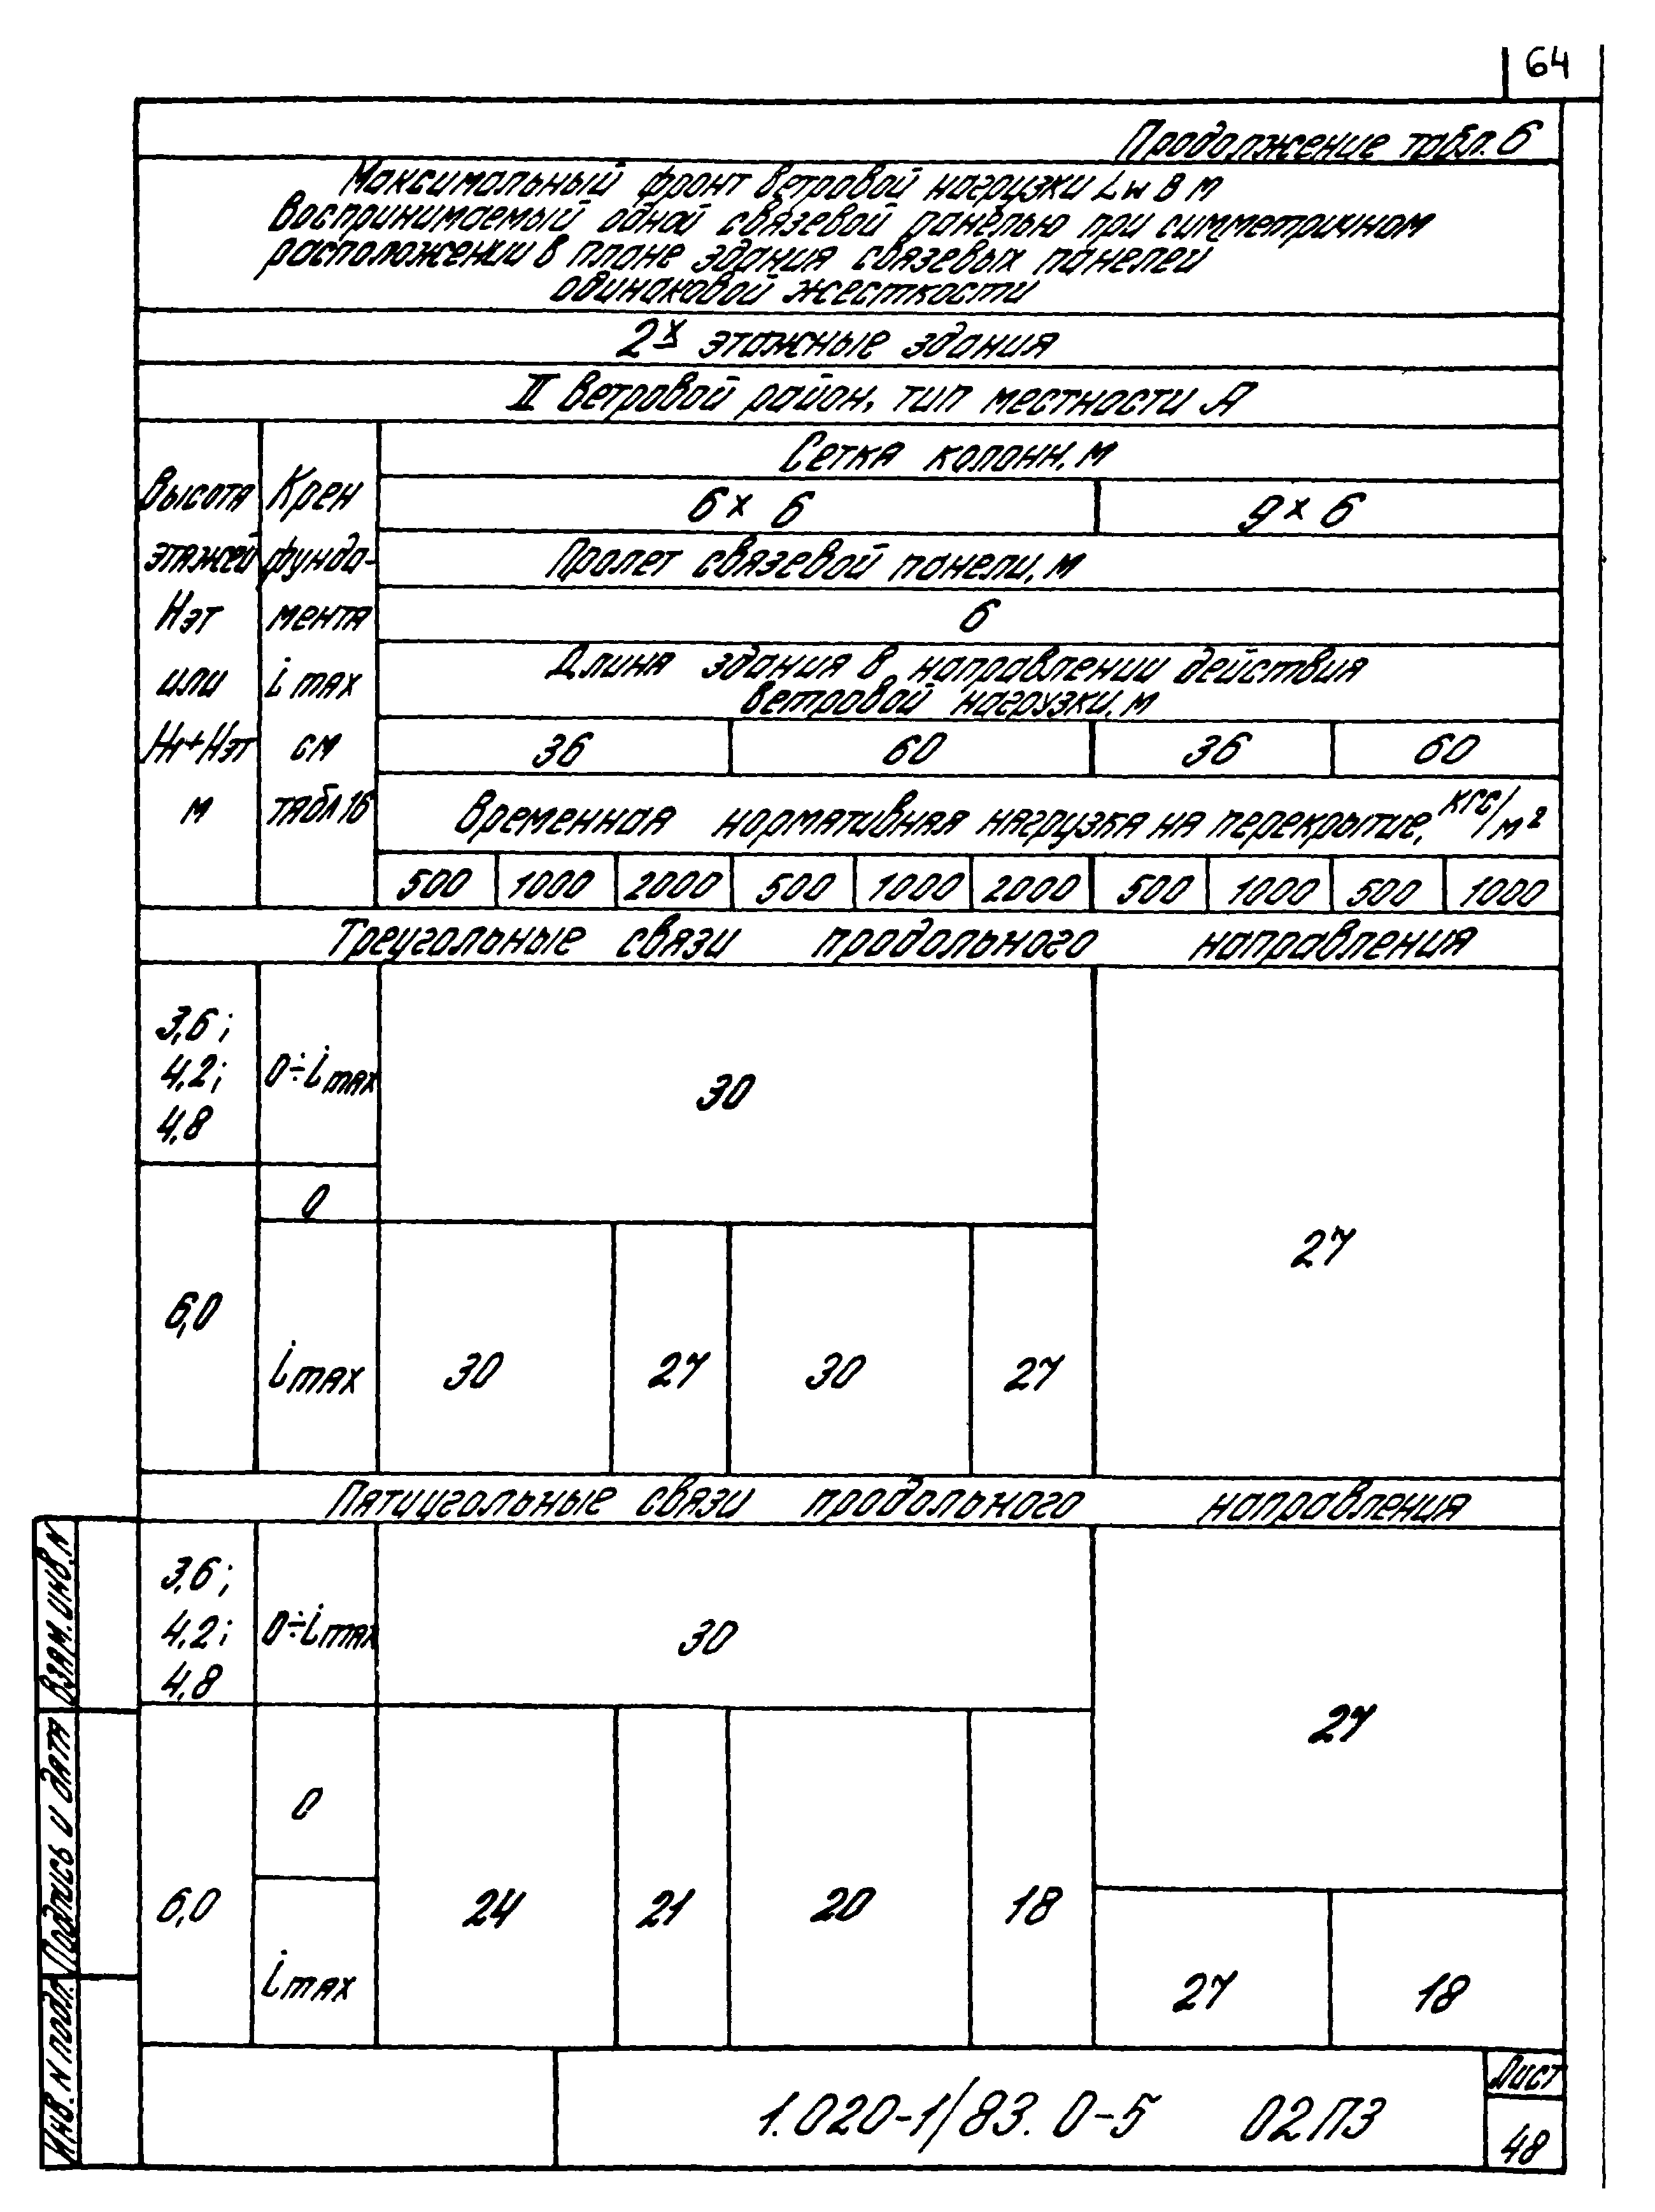 64
Продолжение табл. 6
Максимальный фронт ветровой нагрузки Lw в м
воспринимаемый одной связевой панелью при симметричном
расположении в плане здания связевых панелей
одинаковой жесткости
2х этажные здания
II ветровой район, тип местности А
Высота этажей Нэт или Н1+Нэт м
Крен фунда-мента i max см табл 16
Сетка колонн, м
6 x 6 9 x 6
Пролет связевой панели, м
6
Длина здания в направлении действия
ветровой нагрузки, м
36 60 36 60
Временная нормативная нагрузка на перекрытие, кгс/м2
500 1000 2000 500 1000 2000 500 1000 500 1000
Треугольные связи продольного направления
3,6;
4,2; 0÷imax 30
4,8
0
27
6,0
imax 30 27 30 27
Пятиугольные связи продольного направления
3,6;
4,2; 0÷imax 30
4,8
27
0
6,0 24 21 20 18
imax 27 18
Взам. инв. N
Подпись и дата
Инв. N подл.
1.020-1/83. 0-5 02ПЗ
Лист
48